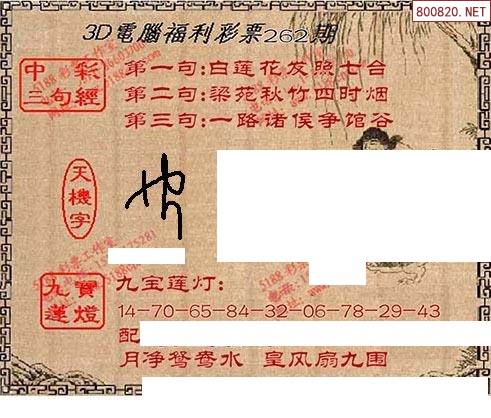 800820.NET
3D電腦福利彩票262期
中彩
三句經
第一句:白莲花发照七台
第二句:梁苑秋竹四时烟
第三句:一路诸侯争馆谷
天機字
九寶蓮燈
九宝莲灯:
14-70-65-84-32-06-78-29-43
配
月净鸳鸯水 皇风扇九围